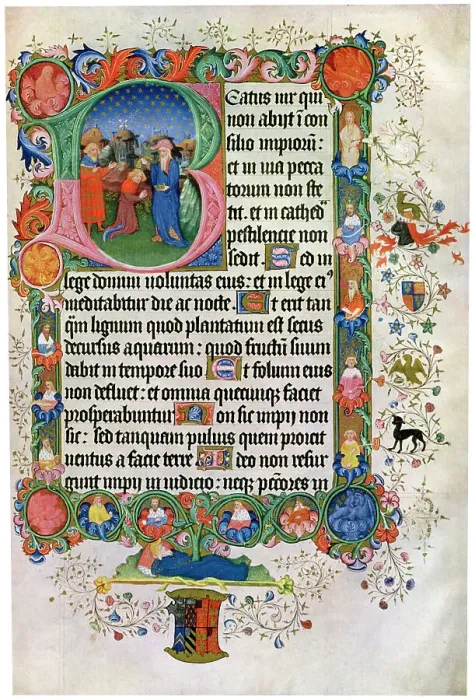 Beatus uir qui
non abijt ī con
silio impiorum:
et in uia pecca
torum non ste
tit. et in cathed̄
pestilencie non
sedit. Sed in
lege domini uoluntas eius: et in lege eiꝰ
meditabitur die ac nocte. Et erit tan
qm̄ lignum quod plantatum est secus
decursus aquarum: quod fructū suum
dabit in tempore suo Et folium eius
non defluet: et omnia quecunque faciet
prosperabuntur Non sic impij non
sic: sed tanquam puluis quem proicit
uentus a facie terre Ideo non resur
gunt impij in iudicio: neqꝫ pc̄tores in